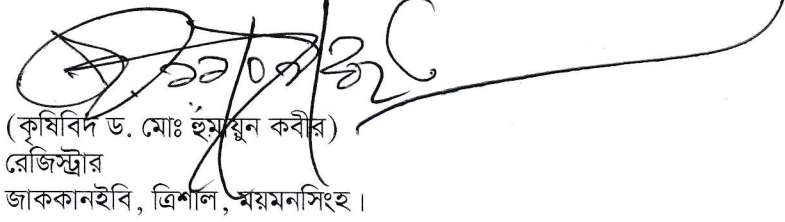 (কৃষিবিদ ড. মোঃ হুঁমায়ুন কবীর)
রেজিস্ট্রার
জাককানইবি, ত্রিশাল, ময়মনসিংহ।